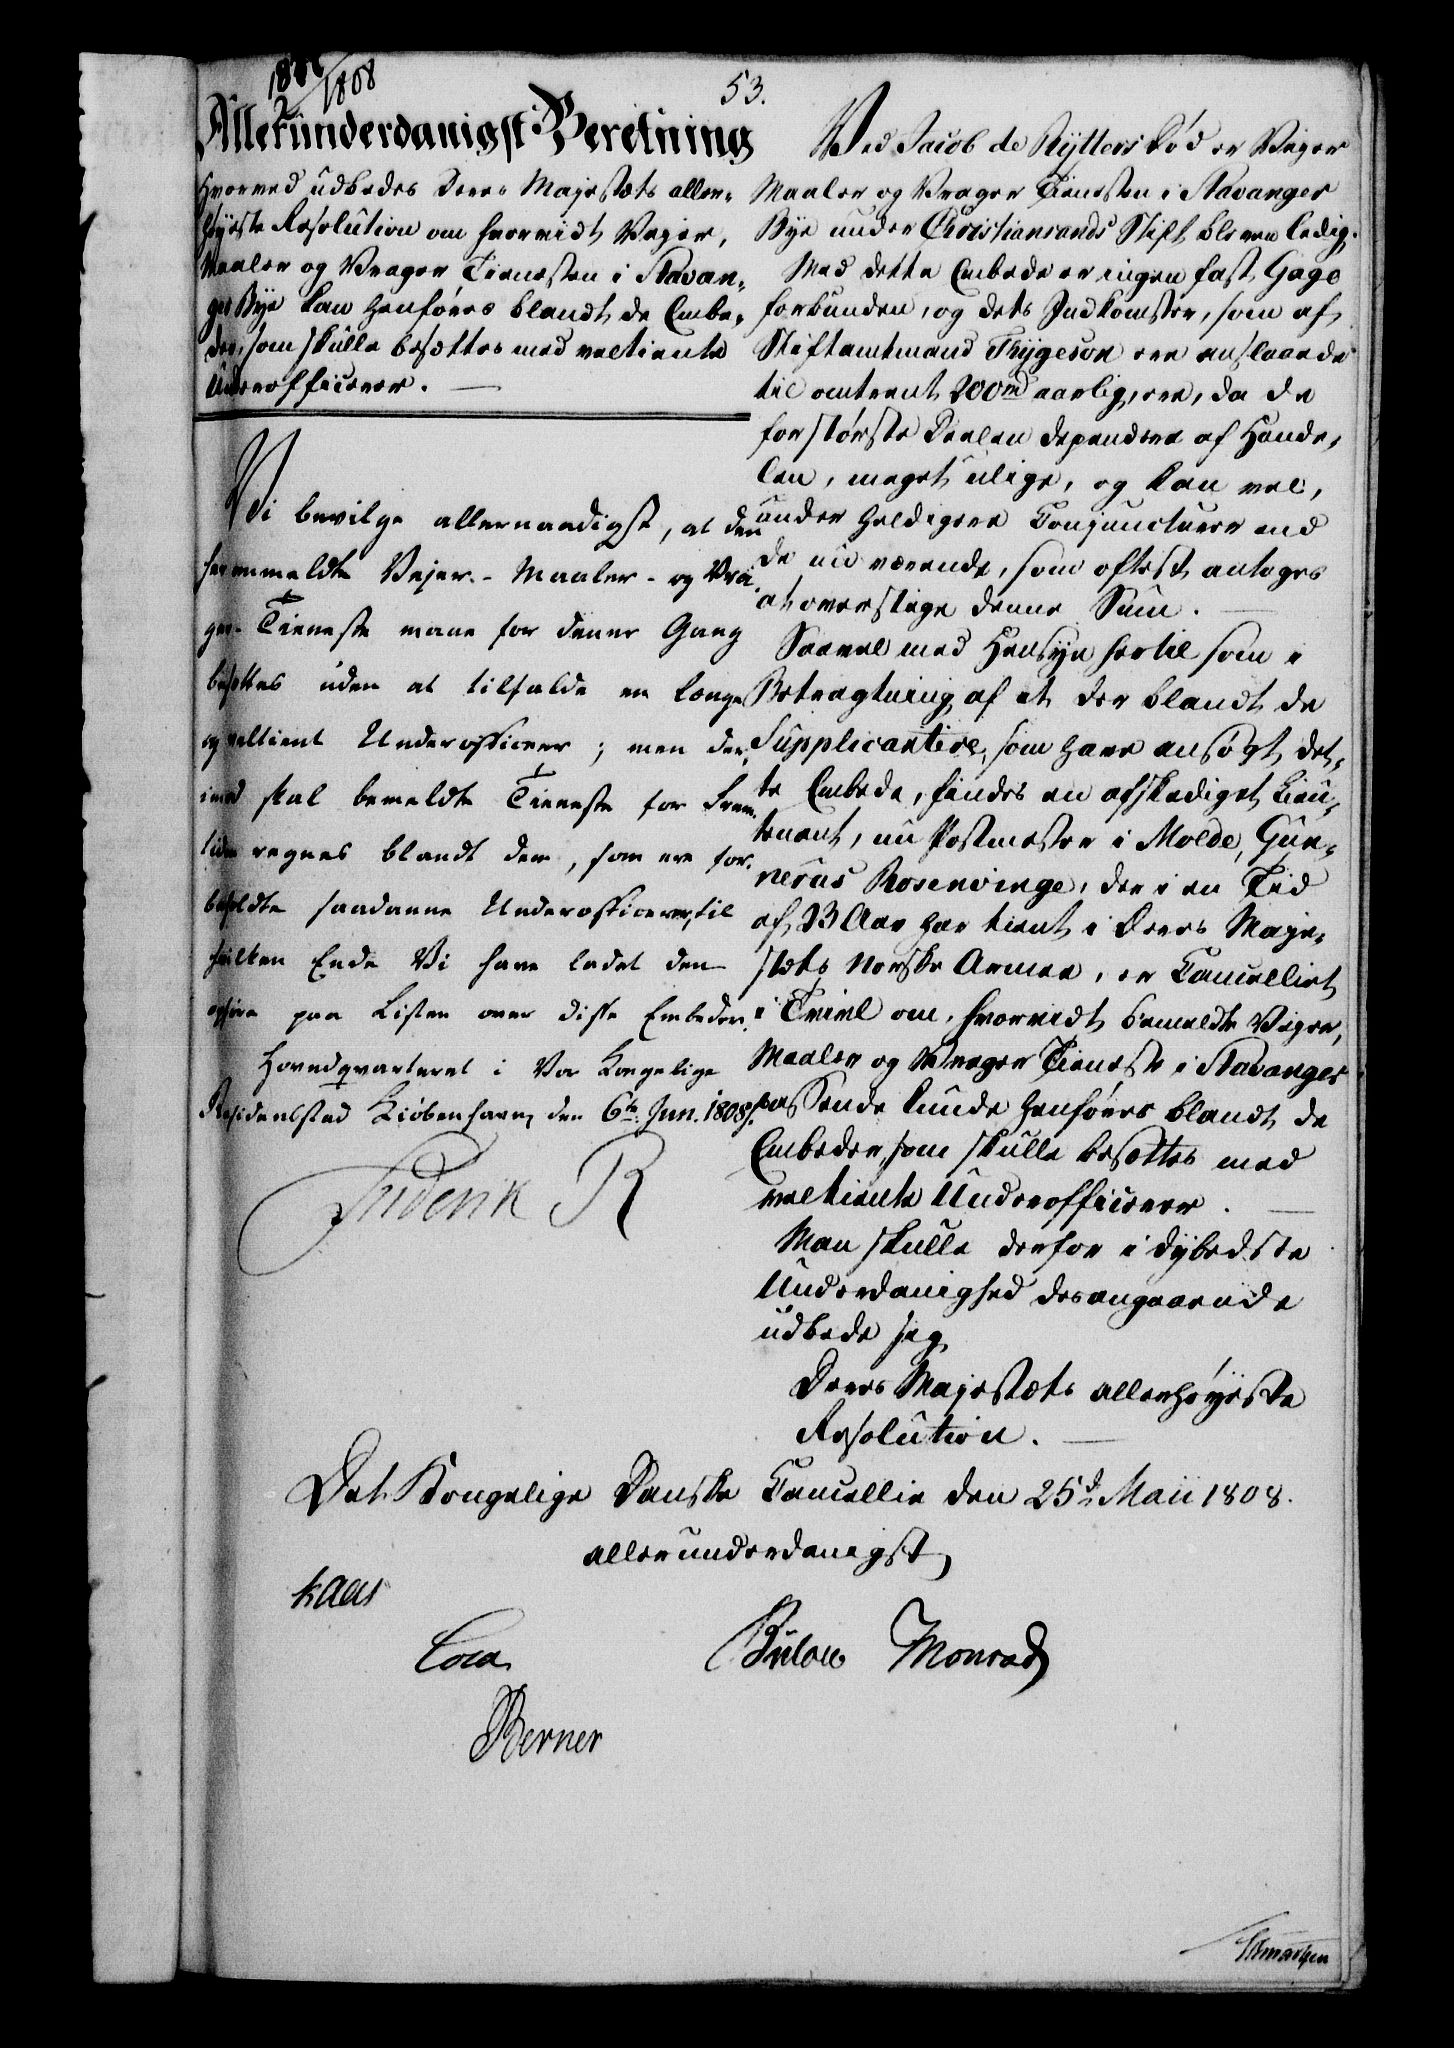 1808
53.
Allerunderdanigst Beretning
Hvorved udbedes Deres Majestæts aller-
høyeste Resolution om hvorvidt Vejer,
Maaler og Vrager Tienesten i Stavan-
ger Bye kan henføres blandt de Embe-
der, som skulle besættes med veltiente
Underofficerer. —
Vi bevilge allernaadigst, at den
herommeldte Vejer- Maaler- og Vra-
ger- Tieneste maae for denne Gang
besættes uden at tilfalde en længe
og veltient Underofficeer; men der-
imod skal bemeldte Tieneste for Frem-
tiden regnes blandt dem, som ere for-
beholdte saadanne Underofficerer, til
hvilken Ende Vi have ladet den
opføre paa Listen over disse Embeder.
Hovedqvarteret i Vor Kongelige
Residentsstad Kiøbenhavn den 6te Jun. 1808.
Frederik R
Ved Jacob de Rytters Død er Vejer
Maaler og Vrager Tienesten i Stavanger
Bye under Christiansands Stift bleven ledig.
Med dette Embede er ingen fast Gage
forbunden, og dets Indkomster, som af
Stiftamtmand Thygeson ere anslaaede
til omtrent 200rd aarlig, ere, da de
for største Deelen dependere af Hande-
len, meget ulige, og kan vel,
under heldigere Conjuncturer end
de nu værende, som oftest antages
at overstige denne Sum. —
Saavel med Hensyn hertil som i
Betragtning af at der blandt de
Supplicantere, som have ansøgt det-
te Embede, findes en afskediget Lieu-
tenant, nu Postmester i Molde, Gun-
nerus Rosenvinge, der i en Tid
af 23 Aar har tient i Deres Maje-
stæts Norske Armee, er Cancelliet
i Tvivl om, hvorvidt bemeldte Vejer,
Maaler og Vrager Tieneste i Stavanger
passende kunde henføres blandt de
Embeder, som skulle besættes med
veltiente Underofficerer. —
Man skulle derfor i dybedste
Underdanighed desangaaende
udbede sig
Deres Majestæts allerhøyeste
Resolution. —
Det Kongelige Danske Cancellie den 25d Maii 1808.
allerunderdanigst
Kaas
Cold
Bülow Monrad
Berner